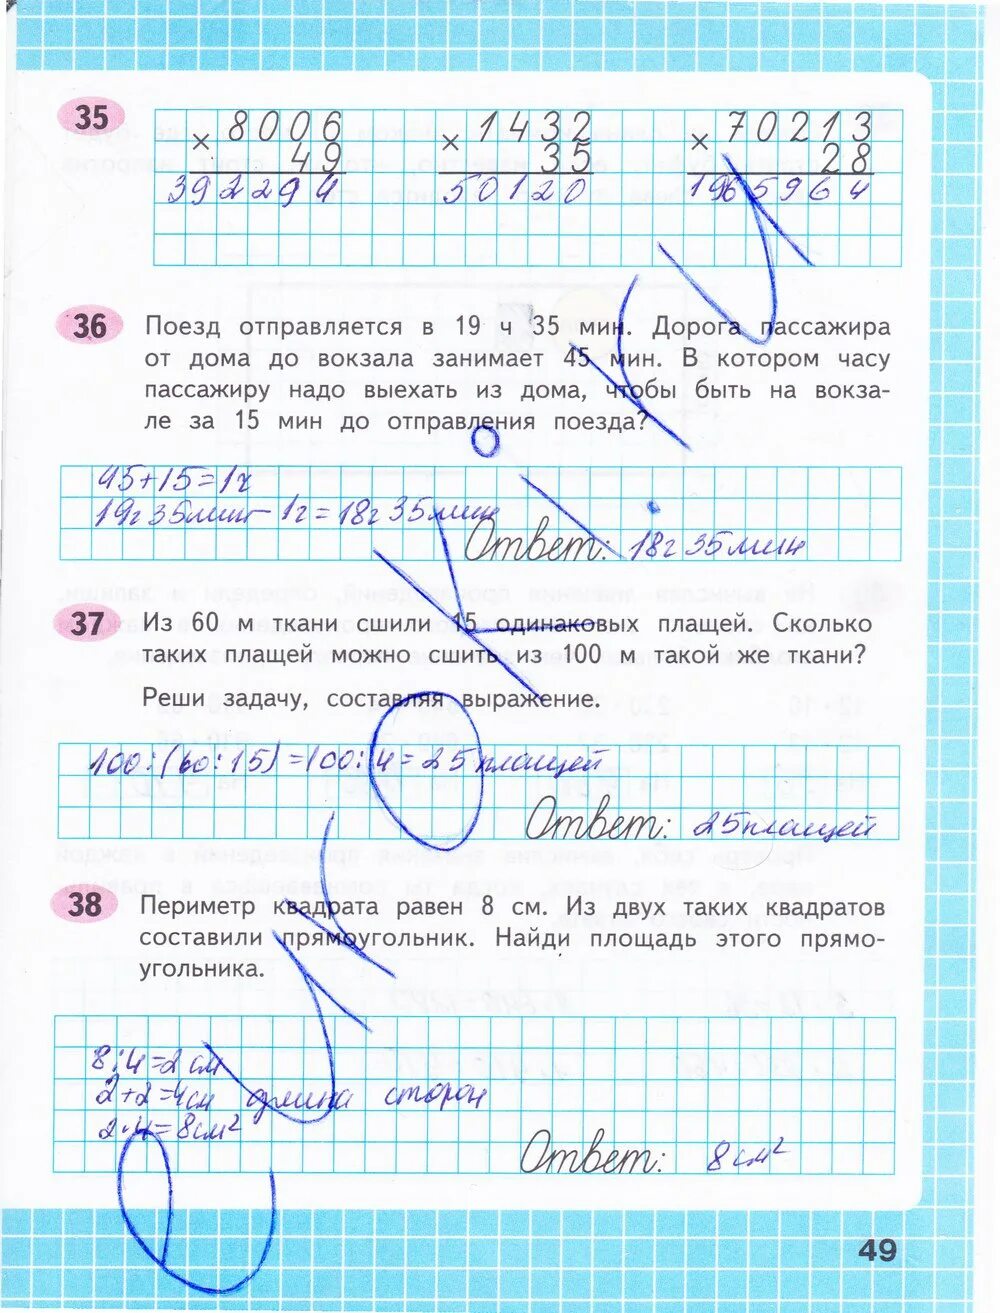 35
× 8006
49
392294
× 1432
35
50120
× 70213
28
1965964
36
Поезд отправляется в 19 ч 35 мин. Дорога пассажира
от дома до вокзала занимает 45 мин. В котором часу
пассажиру надо выехать из дома, чтобы быть на вокза-
ле за 15 мин до отправления поезда?
45+15=1ч
19ч 35мин - 1ч = 18ч 35мин
Ответ: 18ч 35мин
37
Из 60 м ткани сшили 15 одинаковых плащей. Сколько
таких плащей можно сшить из 100 м такой же ткани?
Реши задачу, составляя выражение.
100:(60:15)=100:4=25плащей
Ответ: 25плащей
38
Периметр квадрата равен 8 см. Из двух таких квадратов
составили прямоугольник. Найди площадь этого прямо-
угольника.
8:4=2см
2+2=4см длина сторон
2·4=8см²
Ответ: 8см²
49